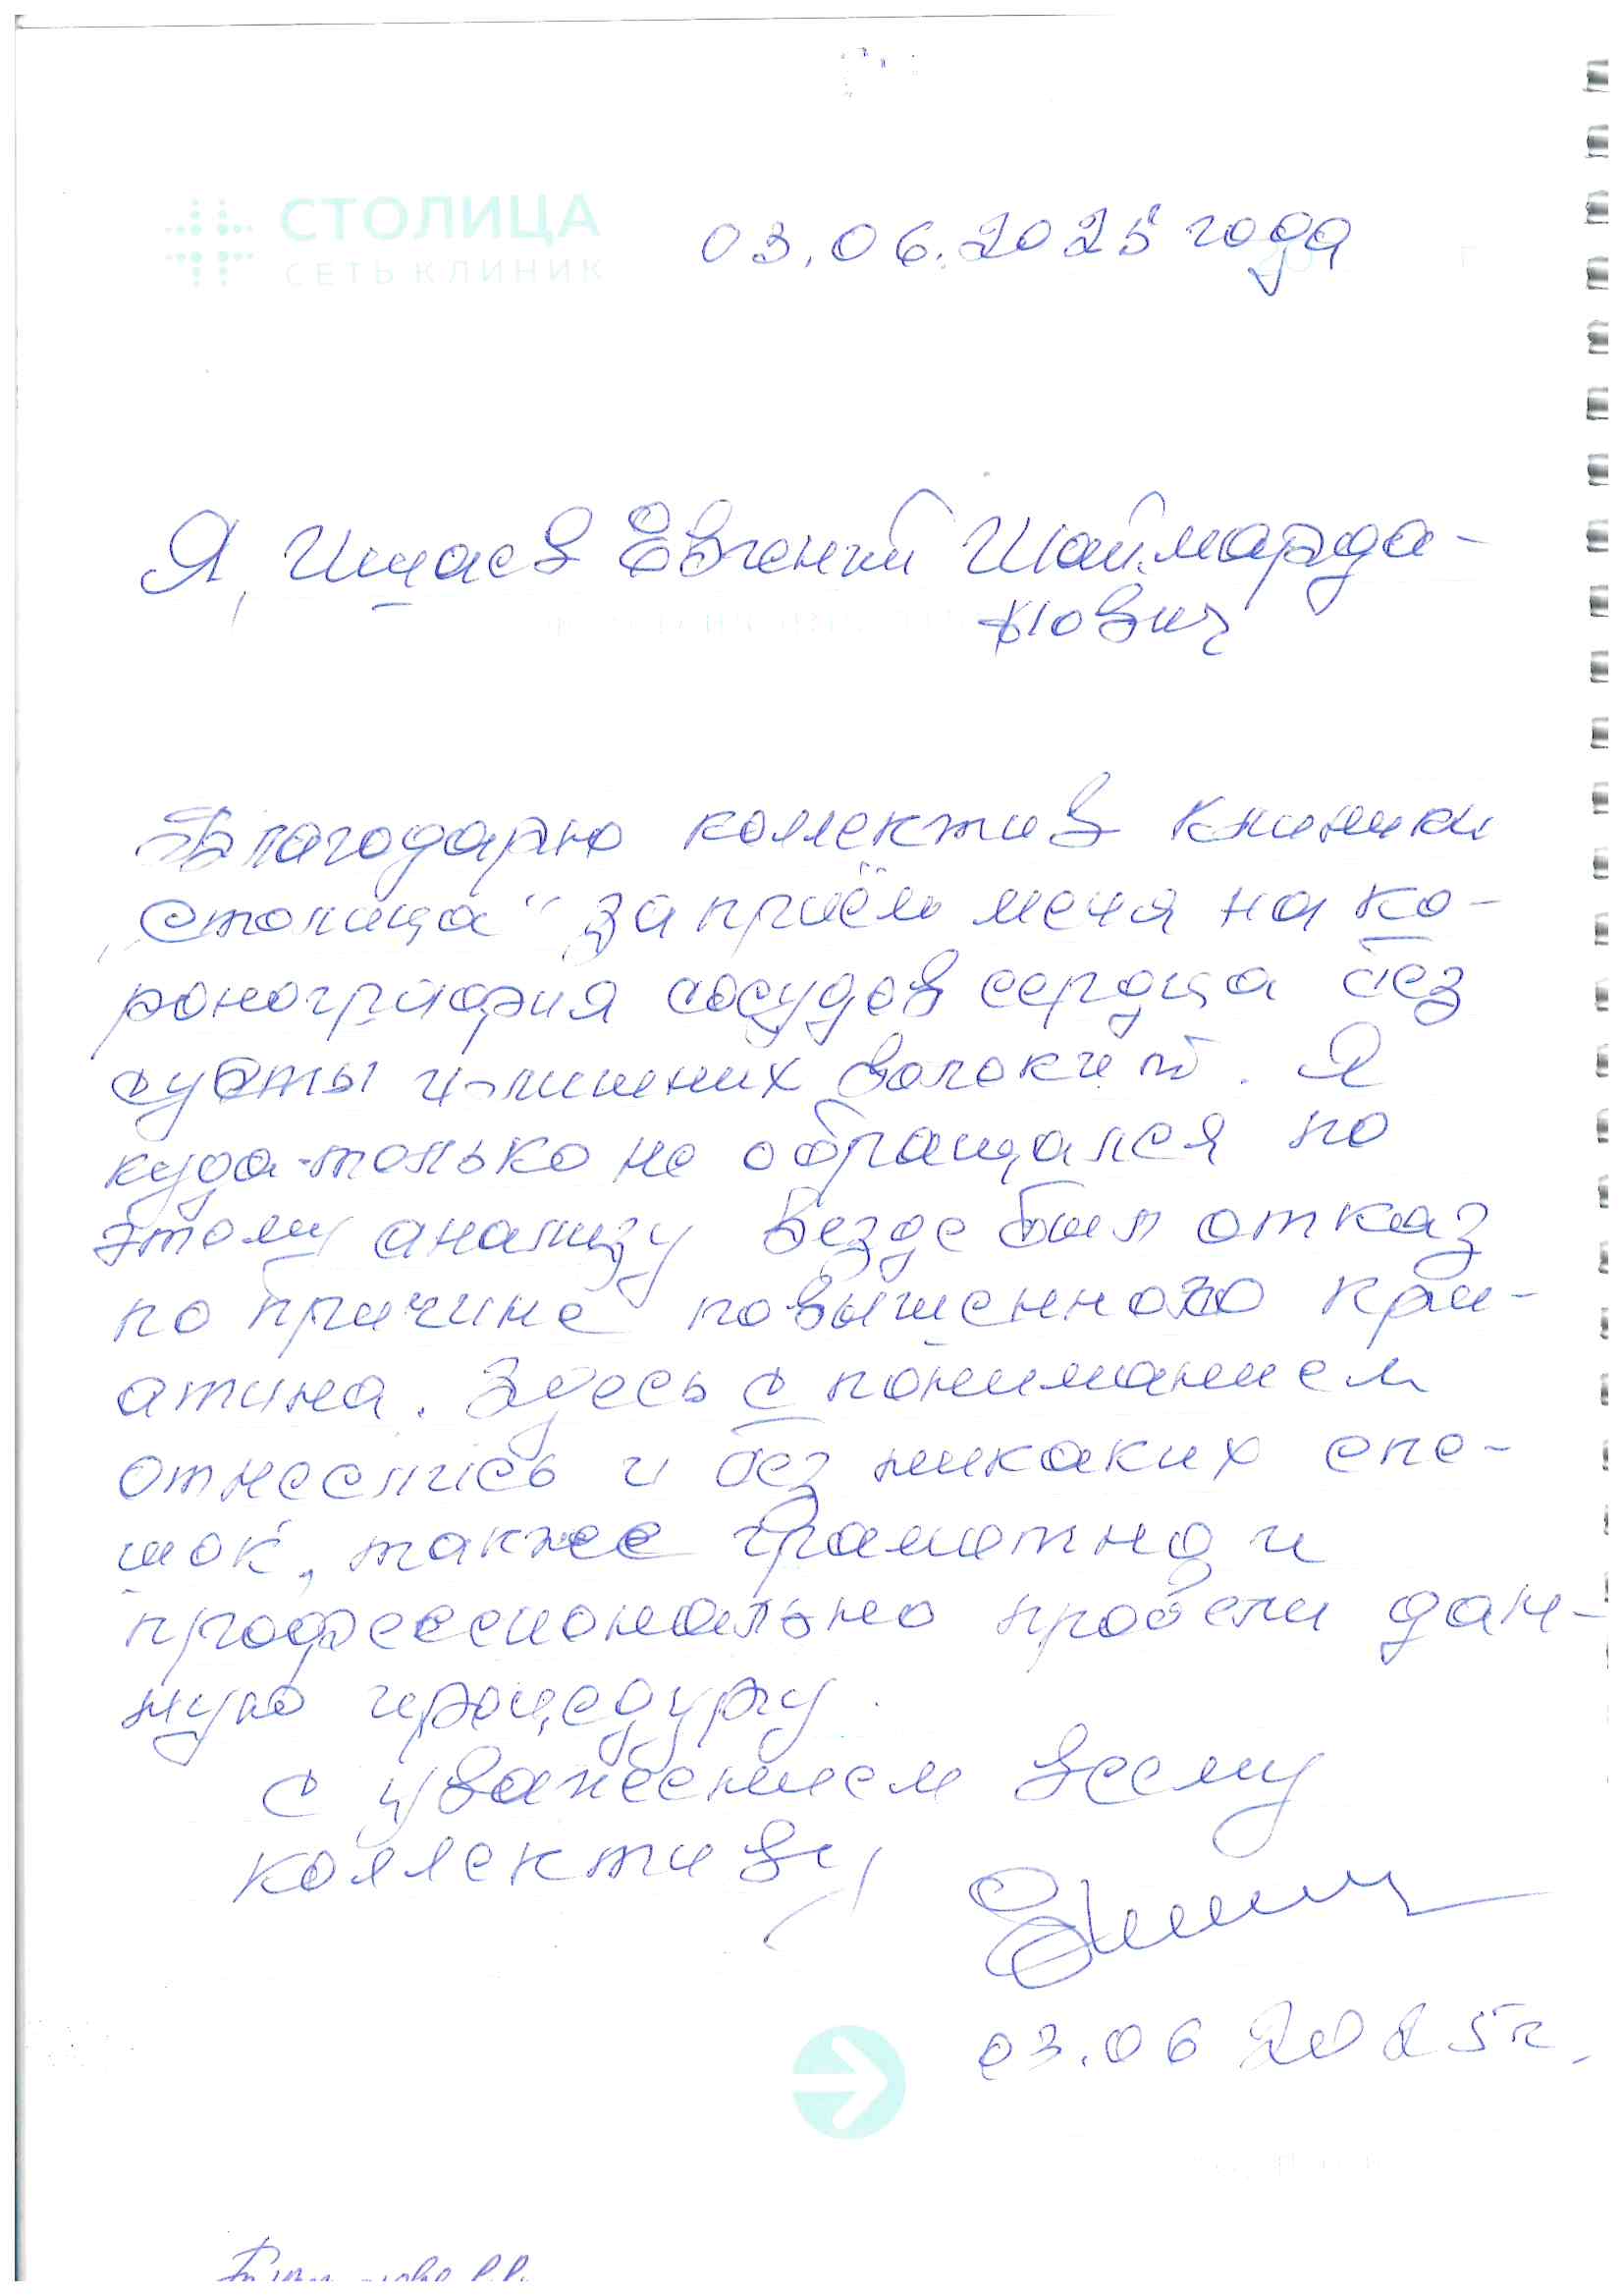 СТОЛИЦА
СЕТЬ КЛИНИК
03.06.2025 года
Я, Ищаев Евгений Шаймарда-
нович
Благодарю коллектив клиники
„Столица“ за приём меня на ко-
ронография сосудов сердца без
суеты и лишних волокит. Я
куда-только не обращался по
этому анализу Везде был отказ
по причине повышенного кри-
атина. Здесь с пониманием
отнеслись и без никаких спе-
шок, также грамотно и
профессионально провели дан-
ную процедуру.
с уважением всему
коллективу
03.06 2025г.